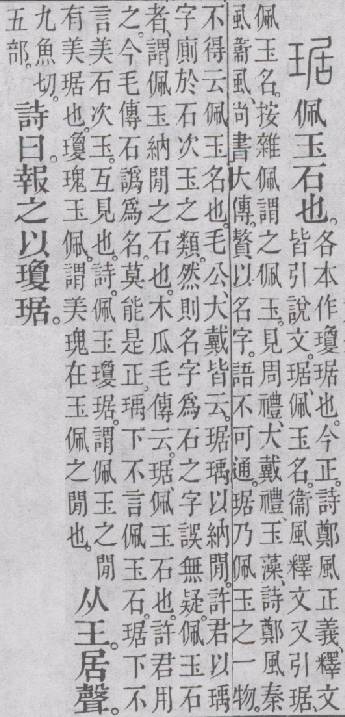 琚 佩玉石也。
各本作瓊琚也。今正。詩鄭風正義、釋文
皆引說文。琚、佩玉名。衞風釋文又引琚、
佩玉名。按雜佩謂之佩玉。見周禮、大戴禮、玉藻、詩鄭風秦
風衞風、尚書大傳。贅以名字。語不可通。琚乃佩玉之一物。
不得云佩玉名也。毛公、大戴皆云。琚瑀以納閒。許君以瑀
字廁於石次玉之類。然則名字爲石之字誤無疑。佩玉石
者、謂佩玉納閒之石也。木瓜毛傳云。琚、佩玉石也。許君用
之。今毛傳石譌爲名。莫能是正。瑀下不言佩玉石。琚下不
言美石次玉。互見也。詩佩玉瓊琚。謂佩玉之閒
有美琚也。瓊瑰玉佩。謂美瑰在玉佩之閒也。
从王。居聲。
九魚切。
五部。
詩曰。報之以瓊琚。